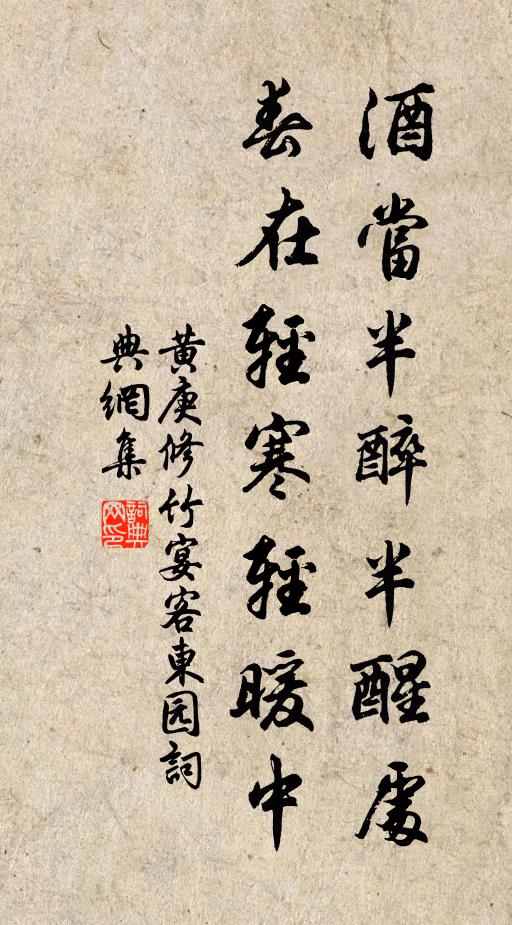 酒當半醉半醒處
春在輕寒輕暖中
黃庚修竹宴客東园詞
典網集
詞典網印